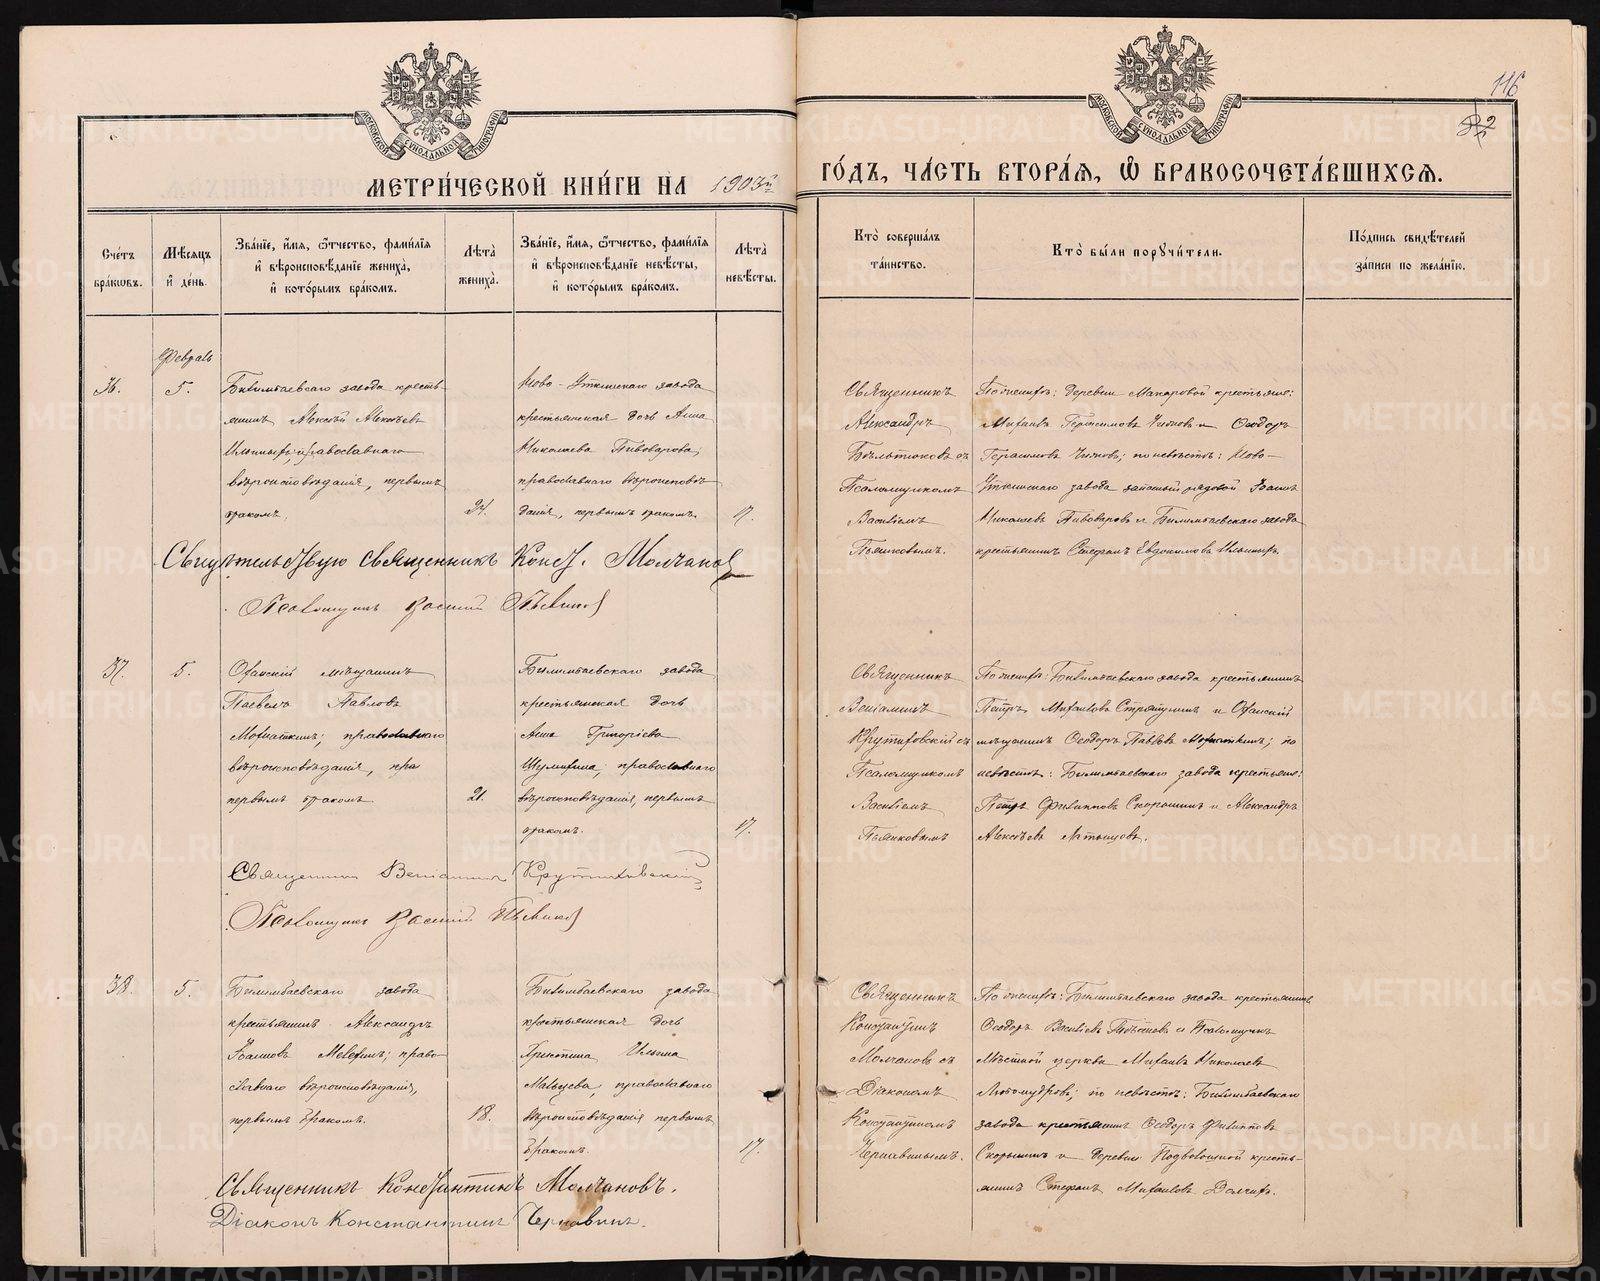 116
МЕТРИ́ЧЕСКОЙ КНИ́ГИ НА 1903й
ГО́ДЪ, ЧА́СТЬ ВТОРА́Я, Ѡ БРАКОСОЧЕТА́ВШИХСЯ.
Сче́тъ бра́кѡвъ.
Мѣ́сяцъ и҆ де́нь.
Зва́нїе, и҆́мя, ѻ҆́тчество, фами́лїя
и҆ вѣроисповѣ́данїе жениха̀,
и҆ кото́рымъ бра́комъ.
Лѣта̀ жениха̀.
Зва́нїе, и҆́мя, ѻ҆́тчество, фами́лїя
и҆ вѣроисповѣ́данїе невѣ́сты,
и҆ кото́рымъ бра́комъ.
Лѣта̀ невѣ́сты.
Кто̀ соверша́лъ
та́инство.
Кто̀ бы́ли поручи́тели.
По́дпись свидѣ́телей
за́писи по жела́нїю.
Февраль
36.
5.
Билимбаевсаго завода кресть-
янинъ Алексѣй Алексѣевъ
Ильиныхъ, православнаго
вѣроисповѣданія, первымъ
бракомъ.
24.
Ново-Уткинскаго завода
крестьянская дочь Анна
Николаева Пивоварова,
православнаго вѣроисповѣ
данія, первымъ бракомъ.
17.
Священникъ
Александръ
съ
Псаломщикомъ
Василіемъ
Пьянковымъ.
По женихѣ: деревни Макаровой крестьяне:
Михаилъ Герасимовъ и Ѳеодоръ
Герасимовъ; по невѣстѣ: Ново-
Уткинскаго завода запасный рядовой Иванъ
Николаевъ Пивоваровъ и Билимбаевскаго завода
крестьянинъ Стефанъ Евдокимовъ Ильиныхъ.
Свидѣтельствую священникъ Конст. Молчановъ
Псаломщикъ Василій Пьянковъ
37.
5.
Оханскій мѣщанинъ
Павелъ Павловъ
православнаго
вѣроисповѣданія, пра
первымъ бракомъ
21.
Билимбаевскаго завода
крестьянская дочь
Анна Григоріева
Шумихина, православнаго
вѣроисповѣданія, первымъ
бракомъ.
17.
Священникъ
Веніаминъ
Крутиховскій съ
Псаломщикомъ
Василіемъ
Пьянковымъ
По женихѣ: Билимбаевскаго завода крестьянинъ
Петръ Михаиловъ и Оханскій
мѣщанинъ Ѳеодоръ Павловъ по
невѣстѣ: Билимбаевскаго завода крестьяне:
Петръ Филипповъ Скорынинъ и Александръ
Алексѣевъ Латышовъ.
Священникъ Веніаминъ Крутиховскій
Псаломщикъ Василій Пьянковъ
38.
5.
Билимбаевскаго завода
крестьянинъ Александръ
Іоанновъ Мелехинъ; право-
славнаго вѣроисповѣданія,
первымъ бракомъ.
18.
Билимбаевскаго завода
крестьянская дочь
Христина Ильина
Мальцева, православнаго
вѣроисповѣданія первымъ
бракомъ.
17.
Священникъ
Константинъ
Молчановъ съ
Діакономъ
Константиномъ
Чернавинымъ.
По женихѣ: Билимбаевскаго завода крестьянинъ
Ѳеодоръ Васильевъ и Псаломщикъ
мѣстной церкви Михаилъ Николаевъ
Любомудровъ; по невѣстѣ: Билимбаевскаго
завода крестьянинъ Ѳеодоръ Филипповъ
Скорынинъ и деревни Подволошной кресть-
янинъ Стефанъ Михаиловъ
Священникъ Константинъ Молчановъ.
Діаконъ Константинъ Чернавинъ.
METRIKI.GASO-URAL.RU